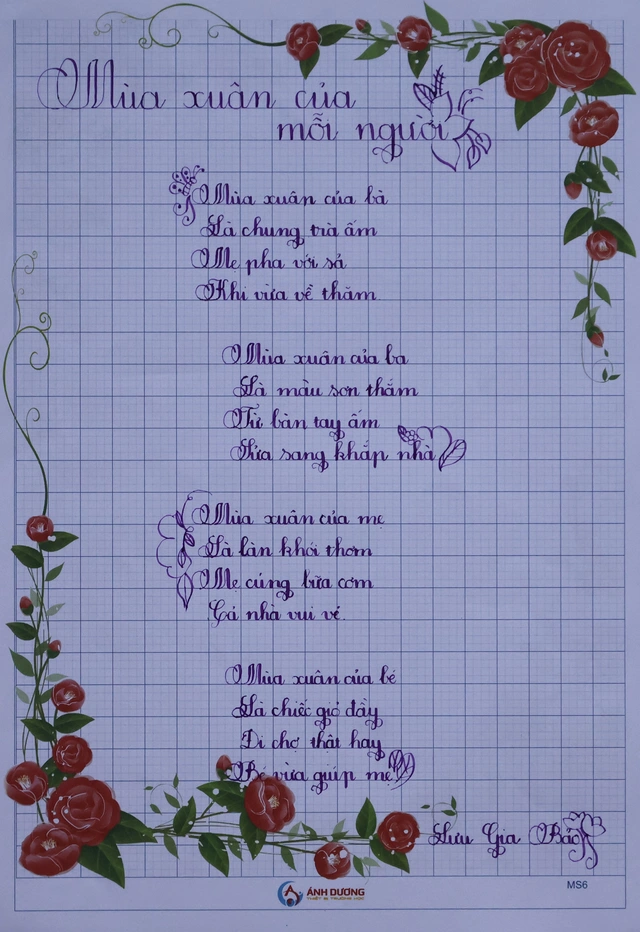 Mùa xuân của
mỗi người
Mùa xuân của bà
Là chung trà ấm
Mẹ pha với sả
Khi vừa về thăm
Mùa xuân của ba
Là màu sơn thắm
Từ bàn tay ấm
Sửa sang khắp nhà
Mùa xuân của mẹ
Là làn khói thơm
Mẹ cúng bữa cơm
Cả nhà vui vẻ.
Mùa xuân của bé
Là chiếc giỏ đầy
Đi chợ thật hay
Bé vừa giúp mẹ
Lưu Gia Bảo
ÁNH DƯƠNG
THIẾT BỊ TRƯỜNG HỌC
MS6